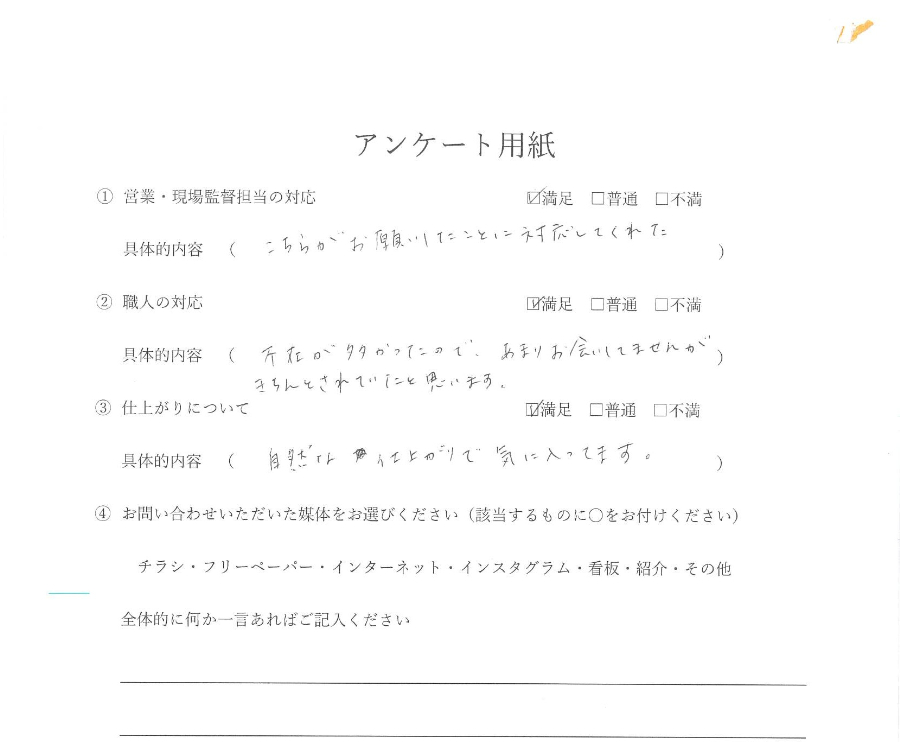 アンケート用紙
① 営業・現場監督担当の対応 ☑満足 □普通 □不満
具体的内容 ( こちらがお願いしたことに対応してくれた )
② 職人の対応 ☑満足 □普通 □不満
具体的内容 ( 不在が多かったので、あまりお会いしてませんが )
きちんとされていたと思います。
③ 仕上がりについて ☑満足 □普通 □不満
具体的内容 ( 自然な 仕上がりで気に入ってます。 )
④ お問い合わせいただいた媒体をお選びください（該当するものに〇をお付けください）
チラシ・フリーペーパー・インターネット・インスタグラム・看板・紹介・その他
全体的に何か一言あればご記入ください